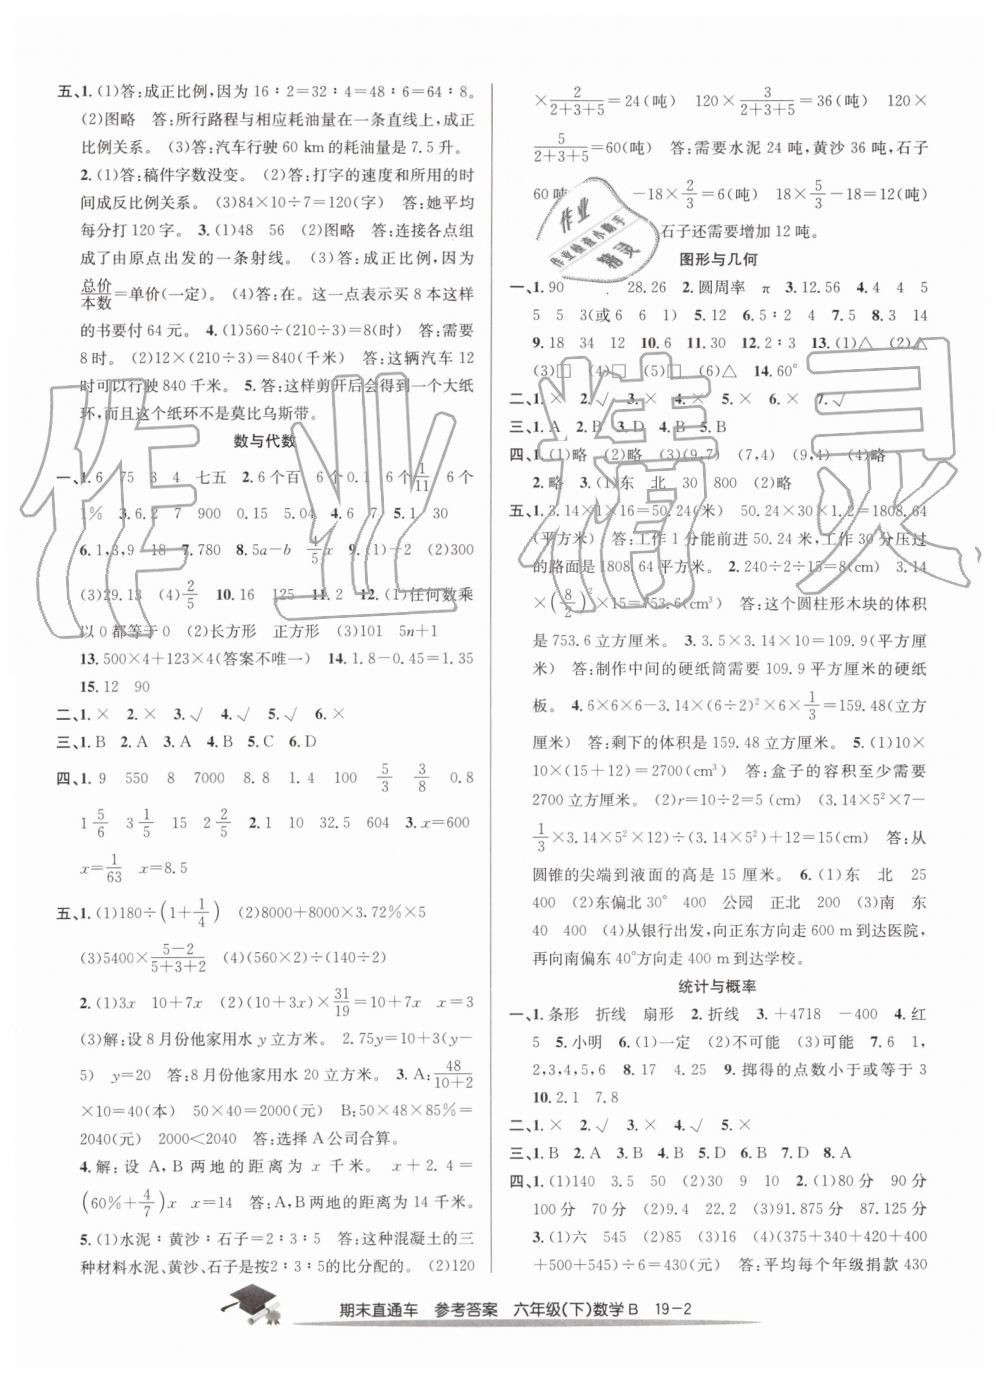 五、1. (1)答:成正比例,因为 16∶2=32∶4=48∶6=64∶8。
(2)图略　答:所行路程与相应耗油量在一条直线上,成正
比例关系。　(3)答:汽车行驶 60 km 的耗油量是 7.5 升。
2. (1)答:稿件字数没变。　(2)答:打字的速度和所用的时
间成反比例关系。　(3)84×10÷7=120(字)　答:她平均
每分打 120 字。　3. (1)48　56　(2)图略　答:连接各点组
成了由原点出发的一条射线。　(3)答:成正比例。因为
总价/本数=单价(一定)。　(4)答:在。这点表示买 8 本这样
的书要付 64 元。　4. (1)560÷(210÷3)=8(时)　答:需要
8 时。　(2)12×(210÷3)=840(千米)　答:这辆汽车 12
时可以行驶 840 千米。　5. 答:这样剪开后会得到一个大纸
环,而且这个纸环不是莫比乌斯带。
数与代数
一、1. 6　75　3　4　七五　2. 6 个百　6 个 0.1　6 个 1/11　6 个
1%　3. 6.2　7　900　0.15　5.04　4. 6　7　5. 1　30
6. 1,3,9　18　7. 780　8. 5a-b　4/5 x　9. (1)-2　(2)300
(3)29.13　(4)2/5　10. 16　125　11. 2　12. (1)任何数乘
以 0 都等于 0　(2)长方形　正方形　(3)101　5n+1
13. 500×4+123×4(答案不唯一)　14. 1.8-0.45=1.35
15. 12　90
二、1. ×　2. ×　3. √　4. √　5. √　6. ×
三、1. B　2. A　3. A　4. B　5. C　6. D
四、1. 9　550　8　7000　8.8　1.4　100　5/3　3/8　0.8
1 5/6　3 1/5　15　2 2/5　2. 1　10　32.5　604　3. x=600
x=1/63　x=8.5
五、1. (1)180÷(1+1/4)　(2)8000+8000×3.72%×5
(3)5400×(5-2)/(5+3+2)　(4)(560×2)÷(140÷2)
2. (1)3x　10+7x　(2)(10+7x)×31/19=10+7x　x=3
(3)解:设 8 月份他家用水 y 立方米。　2.75y=10+3(y-
5)　y=20　答:8 月份他家用水 20 立方米。　3. A:48/(10+2)
×10=40(本)　50×40=2000(元)　B:50×48×85%=
2040(元)　2000<2040　答:选择 A 公司合算。
4. 解:设 A,B 两地的距离为 x 千米。　x+2.4=
(60%+4/7)x　x=14　答:A,B 两地的距离为 14 千米。
5. (1)水泥∶黄沙∶石子=2∶3∶5　答:这种混凝土的三
种材料水泥、黄沙、石子是按2∶3∶5的比分配的。　(2)120
×2/(2+3+5)=24(吨)　120×3/(2+3+5)=36(吨)　120×
5/(2+3+5)=60(吨)　答:需要水泥 24 吨,黄沙 36 吨,石子
60 吨　-18×2/3=6(吨)　18×5/3-18=12(吨)
石子还需要增加 12 吨。
图形与几何
一、1. 90　28.26　2. 圆周率　π　3. 12.56　4. 4　4　5
5　5　3(或 6　6　1)　5. 12　6. 5∶2　4　7. 5　8. 3　14
9. 18　34　12　10. 6　11. 30　12. 2∶3　13. (1)△　(2)△
(3)□　(4)□　(5)□　(6)△　14. 60°
二、1. ×　2. √　3. ×　4. ×　5. ×　6. ×　7. √
三、1. A　2. B　3. D　4. B　5. B
四、1. (1)略　(2)略　(3)(9,7)　(7,4)　(9,4)　(4)略
2. 略　3. (1)东　北　30　800　(2)略
五、1. 3.14×1×16=50.24(米)　50.24×30×1.2=1808.64
(平方米)　答:工作 1 分能前进 50.24 米,工作 30 分压过
的路面是 1808.64 平方米。　2. 240÷2÷15=8(cm)　3.14
×(8/2)²×15=753.6(cm³)　答:这个圆柱形木块的体积
是 753.6 立方厘米。　3. 3.5×3.14×10=109.9(平方厘
米)　答:制作中间的硬纸筒需要 109.9 平方厘米的硬纸
板。　4. 6×6×6-3.14×(6÷2)²×6×1/3=159.48(立方
厘米)　答:剩下的体积是 159.48 立方厘米。　5. (1)10×
10×(15+12)=2700(cm³)　答:盒子的容积至少需要
2700 立方厘米。　(2)r=10÷2=5(cm)　(3.14×5²×7-
1/3×3.14×5²×12)÷(3.14×5²)+12=15(cm)　答:从
圆锥的尖端到液面的高是 15 厘米。　6. (1)东　北　25
400　(2)东偏北30°　400　公园　正北　200　(3)南　东
40　400　(4)从银行出发,向正东方向走 600 m 到达医院,
再向南偏东 40°方向走 400 m 到达学校。
统计与概率
一、1. 条形　折线　扇形　2. 折线　3. +4718　-400　4. 红
5　5. 小明　6. (1)一定　(2)不可能　(3)可能　7. 6　1,
2,3,4,5,6　8. 17　4.25　9. 掷得的点数小于或等于 3
10. 2.1　7.8
二、1. ×　2. √　3. ×　4. √　5. ×
三、1. B　2. A　3. B　4. A　5. D　6. B　7. D　8. A
四、1. (1)140　3.5　50　(2)30　9　10　2. (1)80分　90分
100分　70分　(2)9.4　(3)91.875分　87.125分
3. (1)六　545　(2)85　(3)16　(4)(375+340+420+400
+500+545)÷6=430(元)　答:平均每个年级捐款 430
期末直通车　参考答案　六年级(下)数学B　19-2
作业精灵
作业
作业检查小助手
精灵